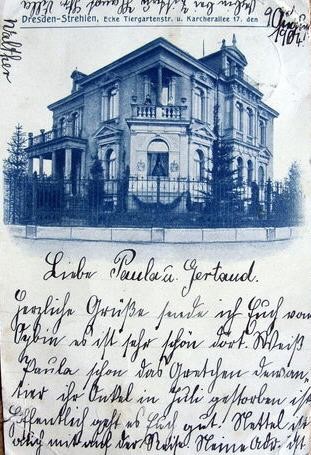 Dresden-Strehlen, Ecke Tiergartenstr. u. Karcherallee 17, den
9. August
1904.
Walther
Liebe Paula u. Gertaud.
Herzliche Grüße sende ich Euch von
Oybin es ist sehr schön dort. Weiß
Paula schon das Gretchen
ihr Onkel in Juli gestorben ist
Hoffentlich geht es Euch gut. Nettel ist
auch mit auf der Reise. Meine Adr. ist